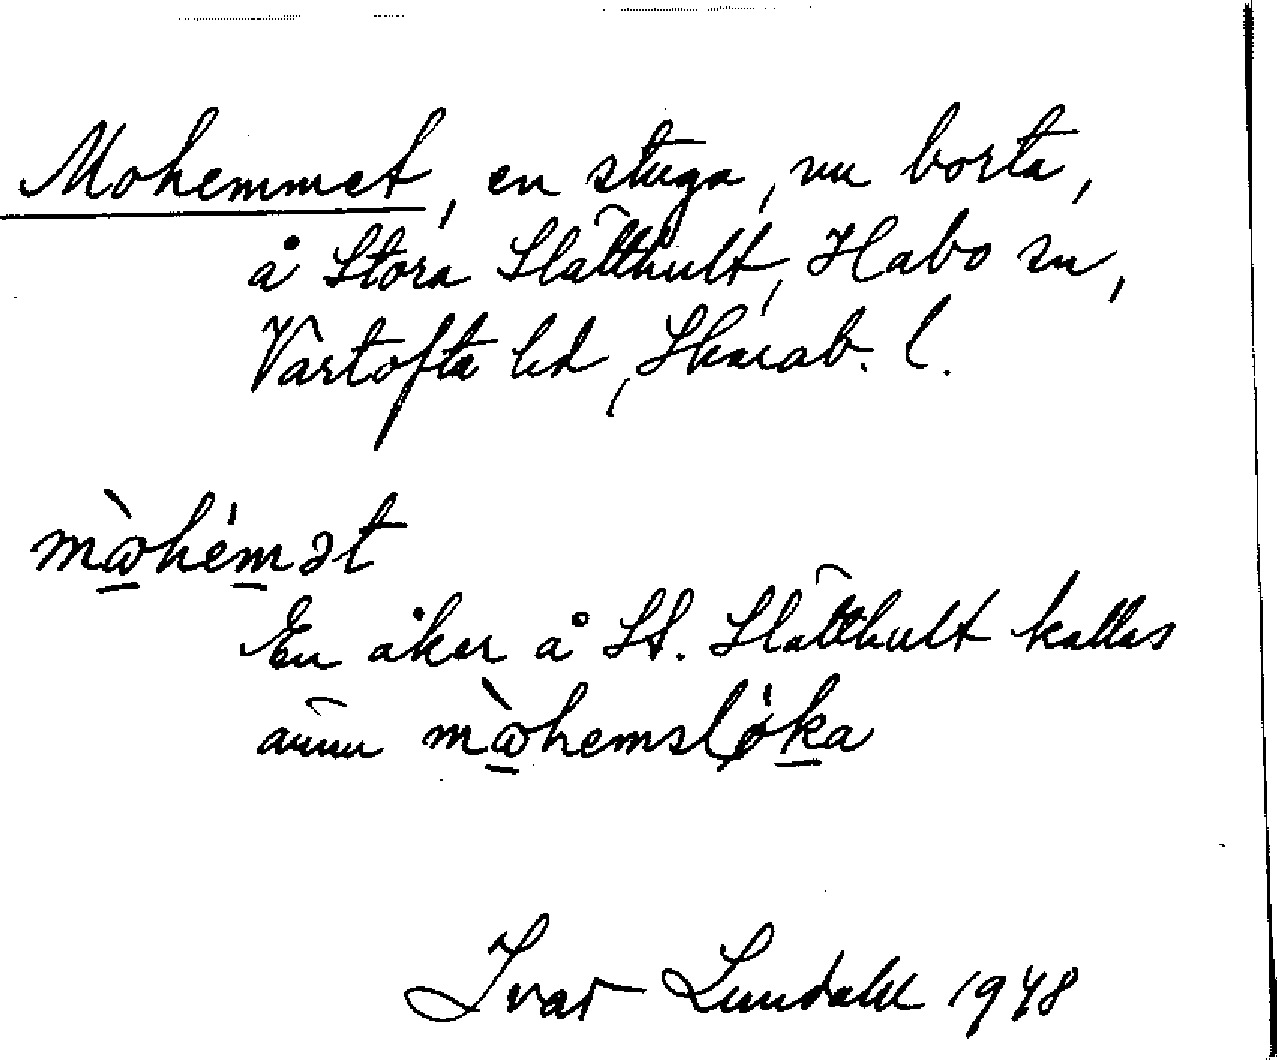 Mohemmet, en stuga, nu borta,
å Stora Slätthult, Habo sn,
Vartofta hd, Skarab. l.
mòhémət
En åker å St. Slätthult kallas
ännu mòhemsløka
Ivar Lundahl 1948